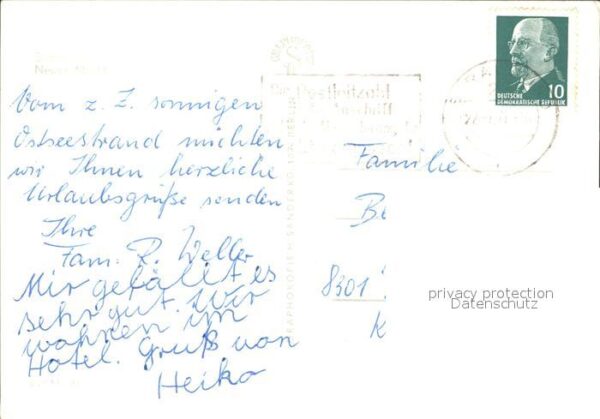 Neuer Markt
Vom z. Z. sonnigen
Ostseestrand möchten
wir Ihnen herzliche
Urlaubsgrüße senden
Ihre
Fam. R. Weller
Mir gefällt es
sehr gut. Wir
wohnen im
Hotel. Gruß von
Heiko
Postleitzahl
10
DEUTSCHE
DEMOKRATISCHE REPUBLIK
Familie
Be
8301
K
privacy protection
Datenschutz